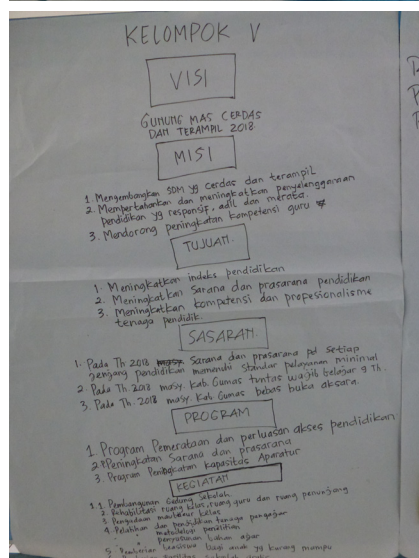 KELOMPOK V
VISI
GUNUNG MAS CERDAS
DAN TERAMPIL 2018
MISI
1. Mengembangkan SDM yg cerdas dan terampil
2. Mempertahankan dan meningkatkan penyelenggaraan
pendidikan yg responsif, adil dan merata.
3. Mendorong peningkatan kompetensi guru
TUJUAN.
1. Meningkatkan indeks pendidikan
2. Meningkatkan Sarana dan prasarana pendidikan
3. Meningkatkan kompetensi dan propesionalisme
tenaga pendidik.
SASARAN.
1. Pada Th 2018 Sarana dan prasarana pd setiap
jenjang pendidikan memenuhi standar pelayanan minimal
2. Pada Th. 2018 masy. Kab. Gumas tuntas wajib belajar 9 Th.
3. Pada Th. 2018 masy. Kab Gumas bebas buka aksara.
PROGRAM
1. Program Pemerataan dan perluasan akses pendidikan
2. Peningkatan Sarana dan prasarana
3. Program Peningkatan kapasitas Aparatur
KEGIATAN
1. Pembangunan Gedung Sekolah.
2. Rehabilitasi ruang kelas, ruang guru dan ruang penunjang
3. Pengadaan kelas
4. Pelatihan dan pendidikan tenaga pengajar
metodologi penelitian
penyusunan bahan ajar
5. Pemberian beasiswa bagi anak yg kurang mampu